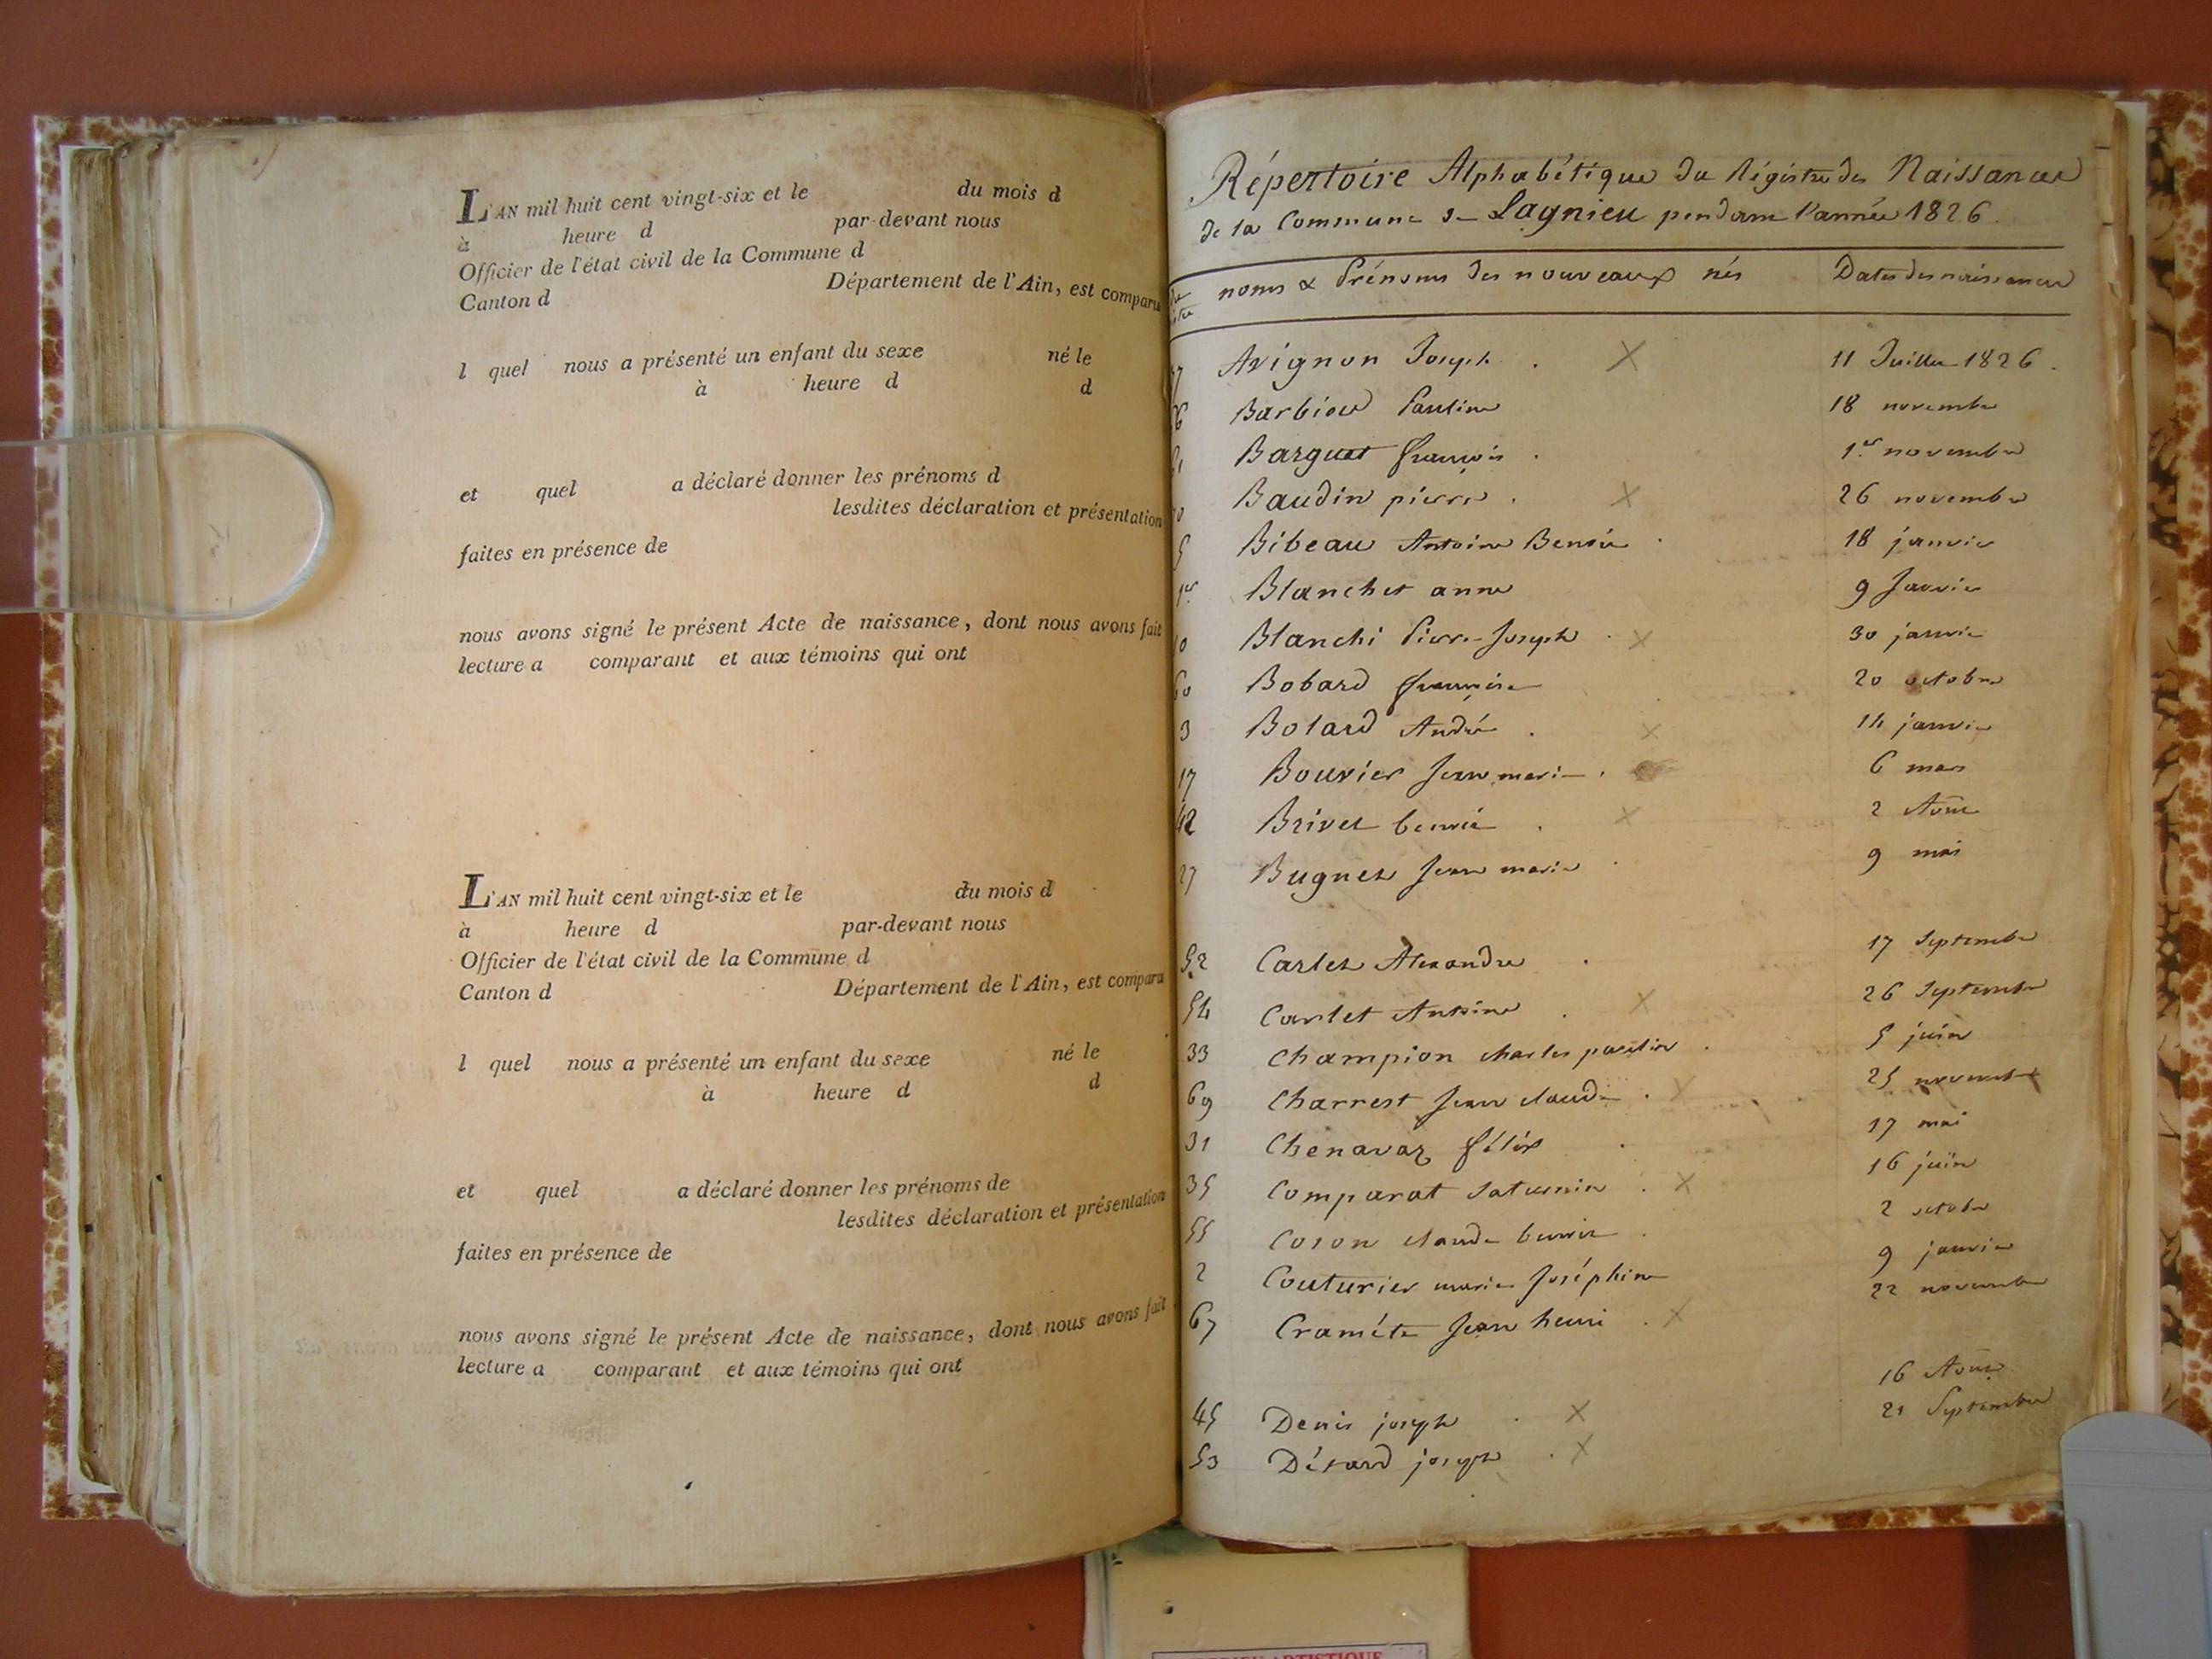 L'AN mil huit cent vingt-six et le du mois d
à heure d par-devant nous
Officier de l'état civil de la Commune d
Canton d Département de l'Ain, est comparu
l quel nous a présenté un enfant du sexe né le
à heure d d
et quel a déclaré donner les prénoms d
lesdites déclaration et présentation
faites en présence de
nous avons signé le présent Acte de naissance, dont nous avons fait
lecture a comparant et aux témoins qui ont
L'AN mil huit cent vingt-six et le du mois d
à heure d par-devant nous
Officier de l'état civil de la Commune d
Canton d Département de l'Ain, est comparu
l quel nous a présenté un enfant du sexe né le
à heure d d
et quel a déclaré donner les prénoms de
lesdites déclaration et présentation
faites en présence de
nous avons signé le présent Acte de naissance, dont nous avons fait
lecture a comparant et aux témoins qui ont
Répertoire Alphabétique du Régistre des Naissances
de la Commune de Lagnieu pendant l'année 1826.
noms & Prénoms des nouveaux nés Dates des naissances
Avignon Joseph . X 11 Juillet 1826.
Barbiou Pauline 18 novembre
Barguet françois . 1er novembre
Baudin pierre . X 26 novembre
5 Bibeau Antoine Benoit . 18 janvier
1er Blanchet anne 9 Janvier
10 Blanchi Pierre Joseph . X 30 janvier
60 Bobard françoise 20 octobre
3 Bolard André . X 14 janvier
17 Bouvier Jean marie . 6 mars
42 Brivet benoit . X 2 Aout
27 Bugnet Jean marie . 9 mai
52 Carlet Alexandre . 17 Septembre
54 Carlet Antoine . X 26 Septembre
33 Champion charles paulin . 5 juin
69 Charrest Jean claude . X 25 novembre
31 Chenavaz félix . 17 mai
35 Comparat Saturnin . X 16 juin
55 Coron claude benoit . 2 octobre
2 Couturier marie Joséphine 9 janvier
67 Craméte Jean henri . X 22 novembre
45 Denis joseph . X 16 Aout
53 Dérard joseph . X 21 Septembre
ARTISTIQUE